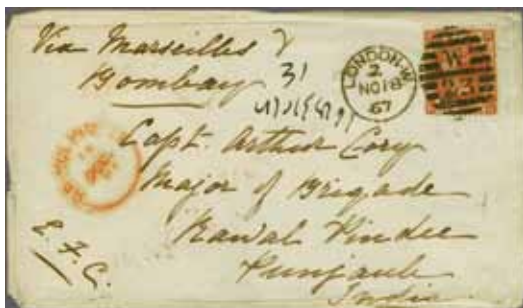 Via Marseilles
Bombay 31
LONDON.W
2
NO 18
67
W
23
Capt. Arthur Cory
Major of Brigade
Rawal Pindee
Punjaub
India
E. F. C.